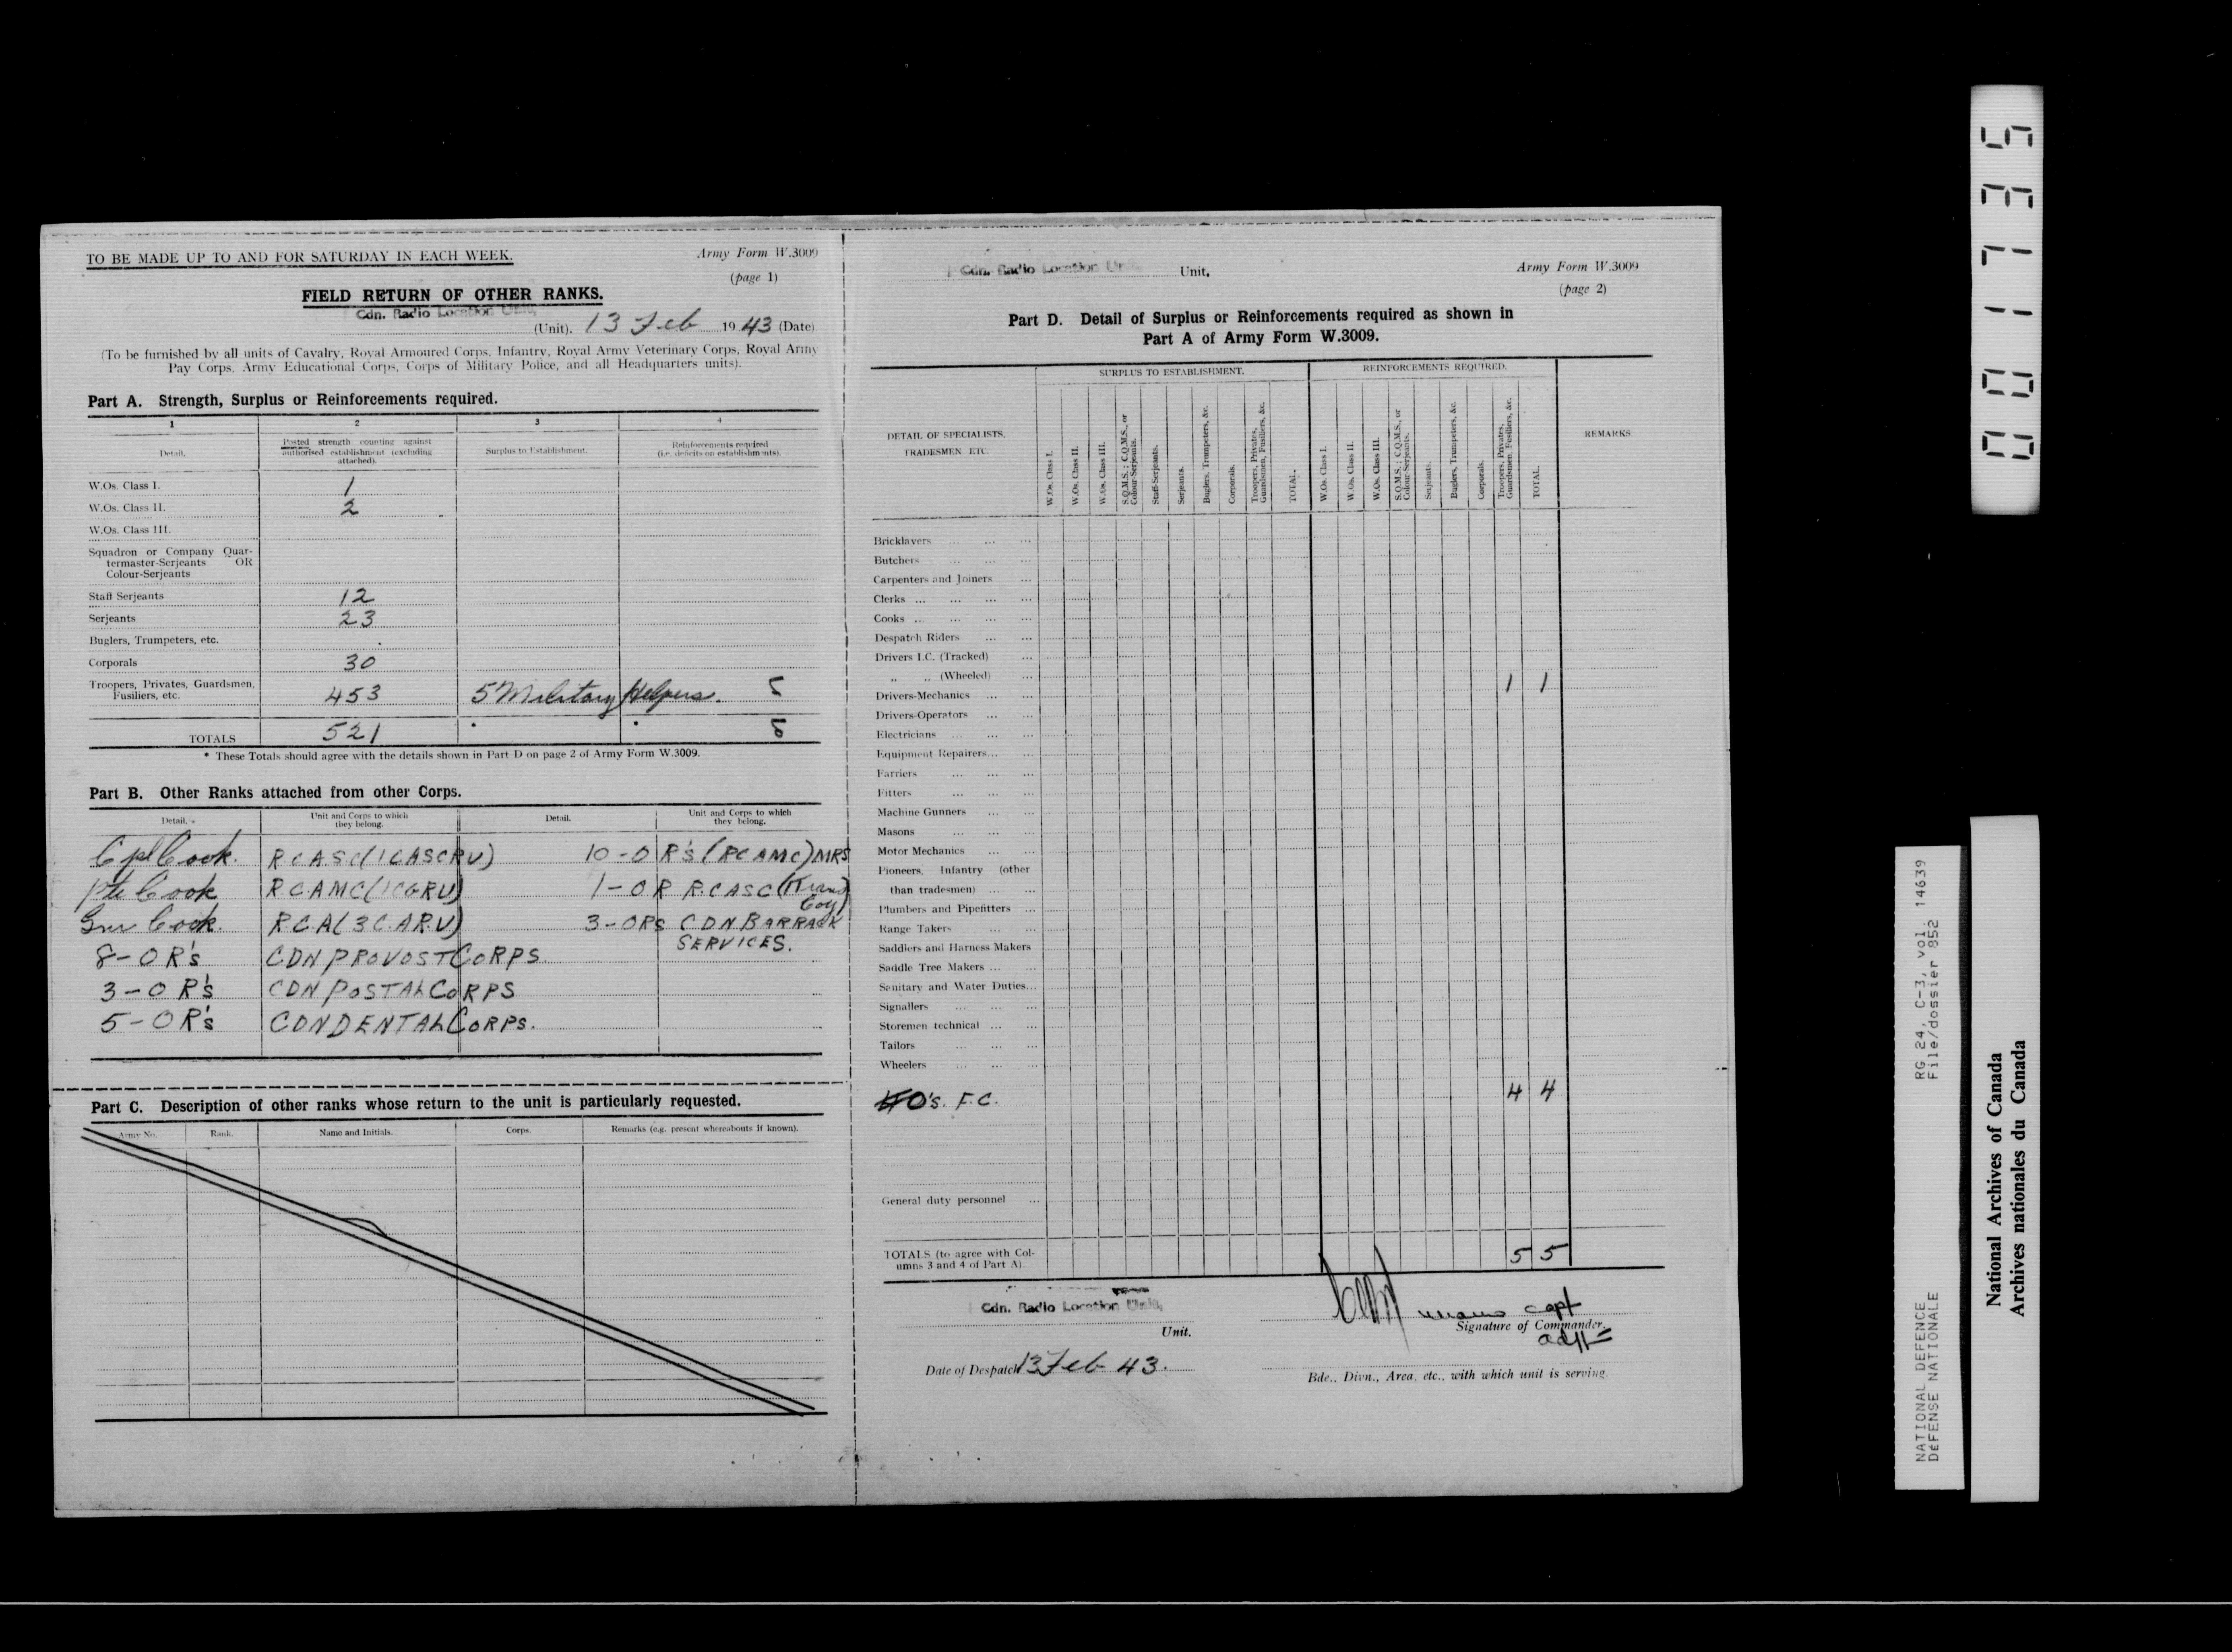 TO BE MADE UP TO AND FOR SATURDAY IN EACH WEEK.
Army Form W.3009
(page 1)
FIELD RETURN OF OTHER RANKS.
Cdn. Radio Location Unit,
(Unit). 13 Feb 1943 (Date)
(To be furnished by all units of Cavalry, Royal Armoured Corps, Infantry, Royal Army Veterinary Corps, Royal Army
Pay Corps, Army Educational Corps, Corps of Military Police, and all Headquarters units).
Part A. Strength, Surplus or Reinforcements required.
1 2 3 4
Detail.
Posted strength counting against
authorised establishment (excluding
attached).
Surplus to Establishment.
Reinforcements required
(i.e. deficits on establishments).
W.Os. Class I. 1
W.Os. Class II. 2
W.Os. Class III.
Squadron or Company Quar-
termaster-Serjeants OR
Colour-Serjeants
Staff Serjeants 12
Serjeants 23
Buglers, Trumpeters, etc.
Corporals 30
Troopers, Privates, Guardsmen,
Fusiliers, etc. 453 5 Military Helpers. 5
TOTALS 521 * * 5
* These Totals should agree with the details shown in Part D on page 2 of Army Form W.3009.
Part B. Other Ranks attached from other Corps.
Detail.
Unit and Corps to which
they belong.
Detail.
Unit and Corps to which
they belong.
Cpl Cook. RCASC (1CASCRU) 10-OR's (RCAMC) MRS
Pte Cook R.C.AMC (1CGRU) 1-OR R.CASC
Coy)
Gnr Cook. R.C.A (3C.A.R.U) 3-ORs CDN BARRACK
SERVICES.
8-OR's CDN PROVOST CORPS.
3-OR's CDN POSTAL CORPS
5-OR's CDN DENTAL CORPS.
Part C. Description of other ranks whose return to the unit is particularly requested.
Army No. Rank. Name and Initials. Corps. Remarks (e.g. present whereabouts if known).
Cdn. Radio Location Unit, Unit.
Army Form W.3009
(page 2)
Part D. Detail of Surplus or Reinforcements required as shown in
Part A of Army Form W.3009.
DETAIL OF SPECIALISTS,
TRADESMEN ETC.
SURPLUS TO ESTABLISHMENT.
W.Os. Class I.
W.Os. Class II.
W.Os. Class III.
S.Q.M.S.; C.Q.M.S., or
Colour-Serjeants.
Staff-Serjeants.
Serjeants.
Buglers, Trumpeters, &c.
Corporals.
Troopers, Privates,
Guardsmen, Fusiliers, &c.
TOTAL.
REINFORCEMENTS REQUIRED.
W.Os. Class I.
W.Os. Class II.
W.Os. Class III.
S.Q.M.S.; C.Q.M.S., or
Colour-Serjeants.
Serjeants.
Buglers, Trumpeters, &c.
Corporals.
Troopers, Privates,
Guardsmen, Fusiliers, &c.
TOTAL.
REMARKS.
Bricklayers ... ... ...
Butchers ... ... ...
Carpenters and Joiners ...
Clerks ... ... ... ...
Cooks ... ... ... ...
Despatch Riders ... ...
Drivers I.C. (Tracked) ...
„ „ (Wheeled) ... 1 1
Drivers-Mechanics ... ...
Drivers-Operators ... ...
Electricians ... ... ...
Equipment Repairers... ...
Farriers ... ... ...
Fitters ... ... ...
Machine Gunners ... ...
Masons ... ... ...
Motor Mechanics ... ...
Pioneers, Infantry (other
than tradesmen) ... ...
Plumbers and Pipefitters ...
Range Takers ... ...
Saddlers and Harness Makers
Saddle Tree Makers ... ...
Sanitary and Water Duties...
Signallers ... ... ...
Storemen technical ... ...
Tailors ... ... ...
Wheelers ... ... ...
O's. F.C. 4 4
General duty personnel ...
TOTALS (to agree with Col-
umns 3 and 4 of Part A) 5 5
Cdn. Radio Location Unit,
Unit.
capt
Signature of Commander.
adjt
Date of Despatch 13 Feb 43.
Bde., Divn., Area, etc., with which unit is serving.
001735
RG 24, C-3, vol. 14639
File/dossier 852
NATIONAL DEFENCE
DÉFENSE NATIONALE
National Archives of Canada
Archives nationales du Canada